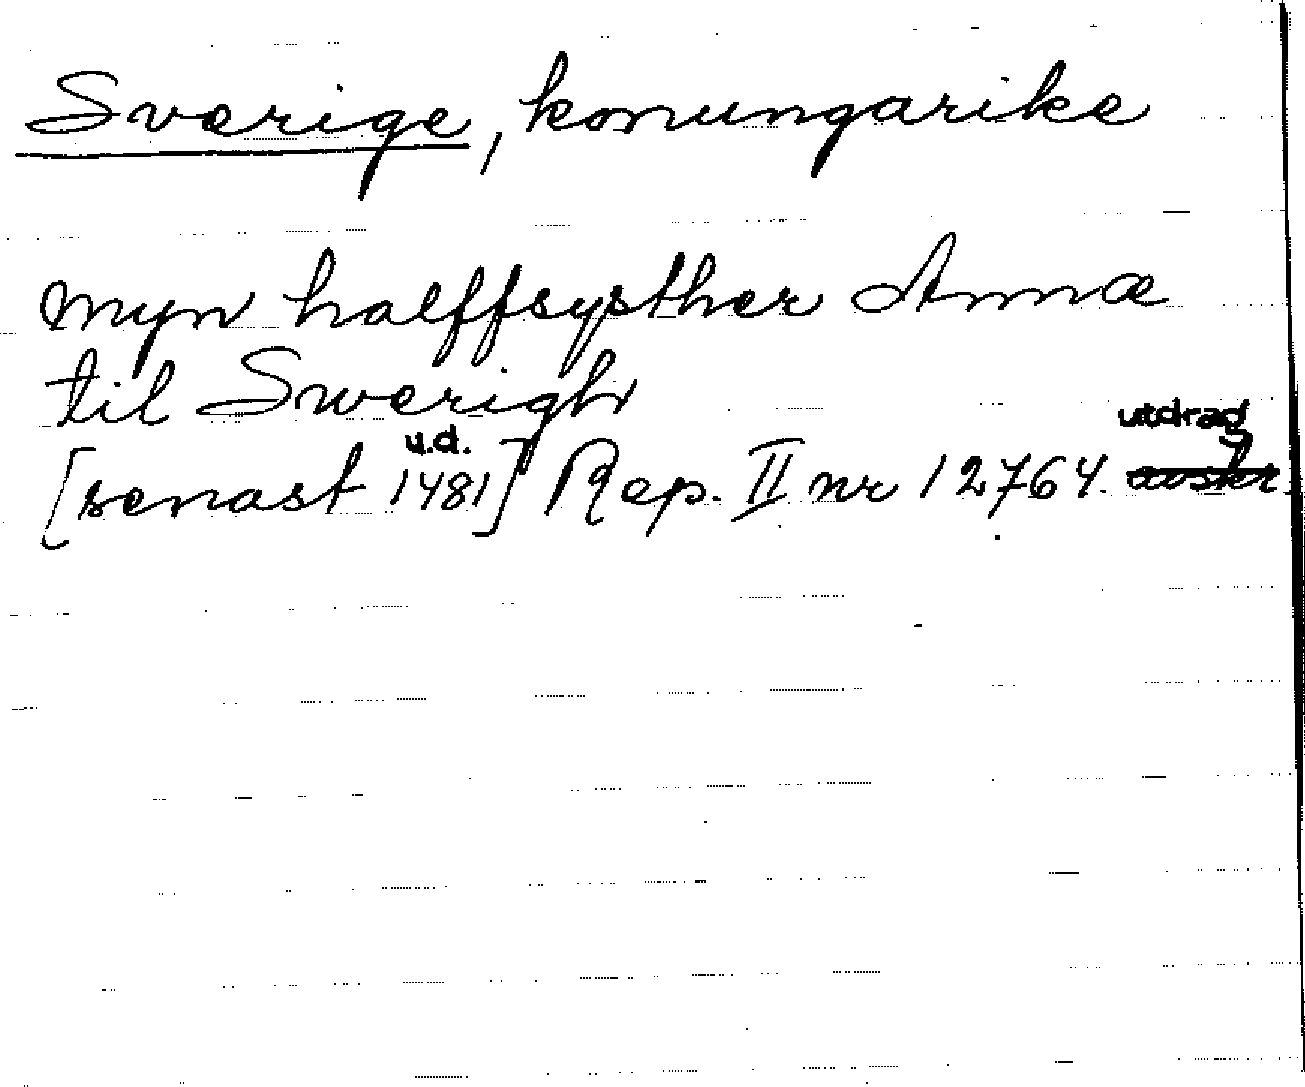 Sverige, konungarike
myn halffsysther Anna
til Swerigh
u.d. utdrag
[senast 1481] Rep. II nr 12764.